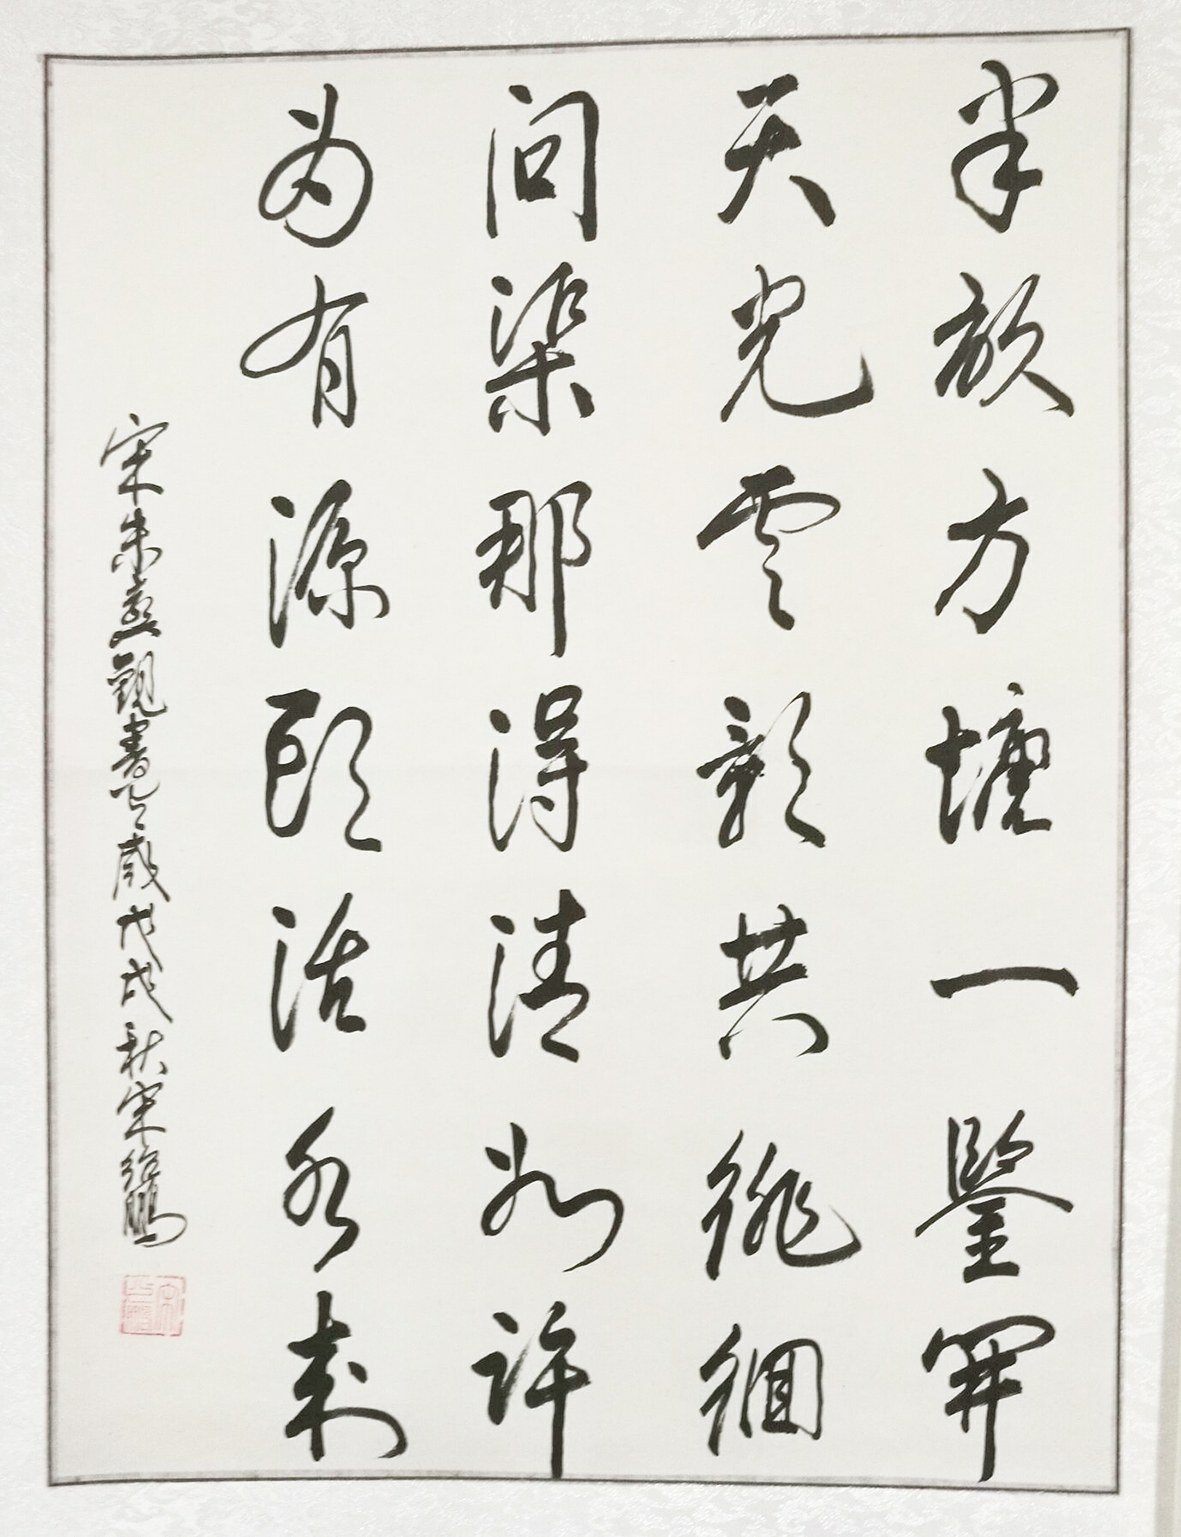 半畝方塘一鑒開
天光雲影共徘徊
问渠那得清如許
为有源頭活水來
宋朱熹觀書 歲戊戌秋宋 鵬